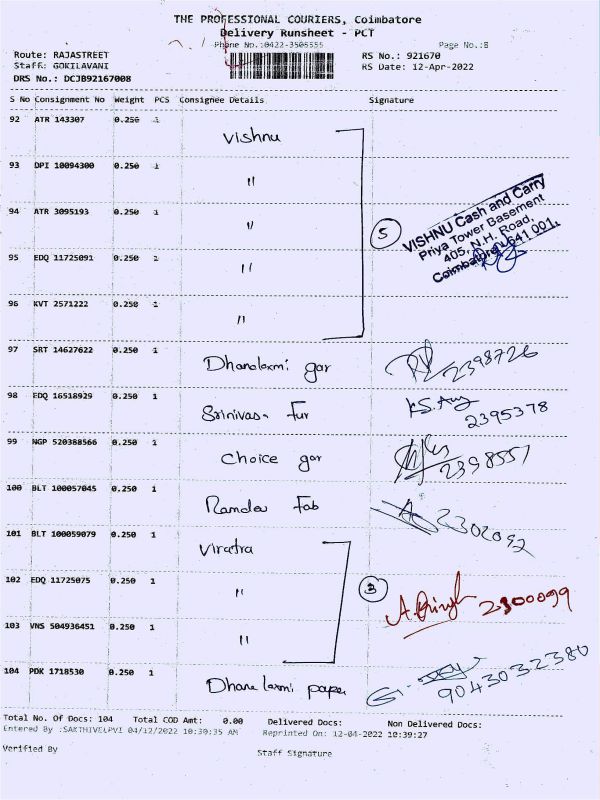 THE PROFESSIONAL COURIERS, Coimbatore
Delivery Runsheet - PCT
Phone No.:0422-3506555 Page No.:8
Route: RAJASTREET RS No.: 921670
Staff: GOKILAVANI RS Date: 12-Apr-2022
DRS No.: DCJB92167008
S No Consignment No Weight PCS Consignee Details Signature
92 ATR 143307 0.250 1 Vishnu
93 DPI 10094300 0.250 1 "
94 ATR 3095193 0.250 1 "
5
VISHNU Cash and Carry
Priya Tower Basement
405, N.H. Road,
Coimbatore 641 001.
95 EDQ 11725091 0.250 1 "
96 KVT 2571222 0.250 1 "
97 SRT 14627622 0.250 1 Dhanalaxmi gar 2398726
98 EDQ 16518929 0.250 1 Srinivasa Fur 2395378
99 NGP 520388566 0.250 1 Choice gar 2398557
100 BLT 100057045 0.250 1 Ramdev Fab 2302092
101 BLT 100059079 0.250 1 Viratra
102 EDQ 11725075 0.250 1 " 3 2300099
103 VNS 504936451 0.250 1 "
104 PDK 1718530 0.250 1 Dhana laxmi paper 9043032380
Total No. Of Docs: 104 Total COD Amt: 0.00 Delivered Docs: Non Delivered Docs:
Entered By :SAKTHIVELPVI 04/12/2022 10:30:35 AM Reprinted On: 12-04-2022 10:39:27
Verified By Staff Signature